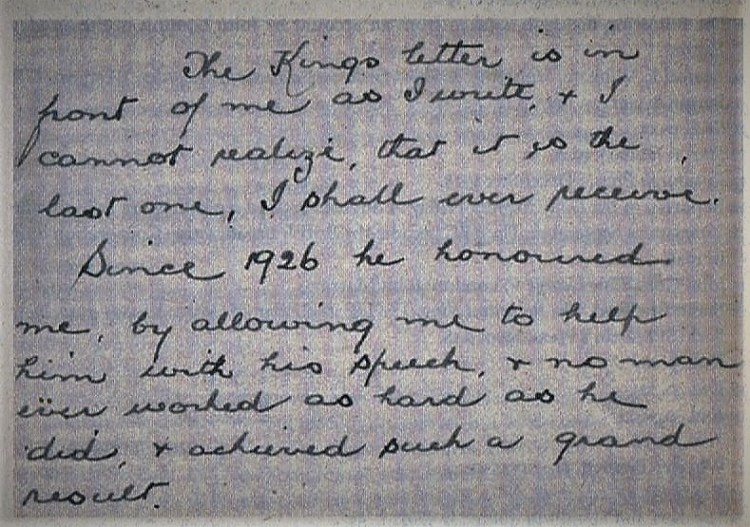 The Kings letter is in
front of me as I write, & I
cannot realize, that it is the
last one, I shall ever receive.
Since 1926 he honoured
me, by allowing me to help
him with his speech, & no man
ever worked as hard as he
did, & achieved such a grand
result.